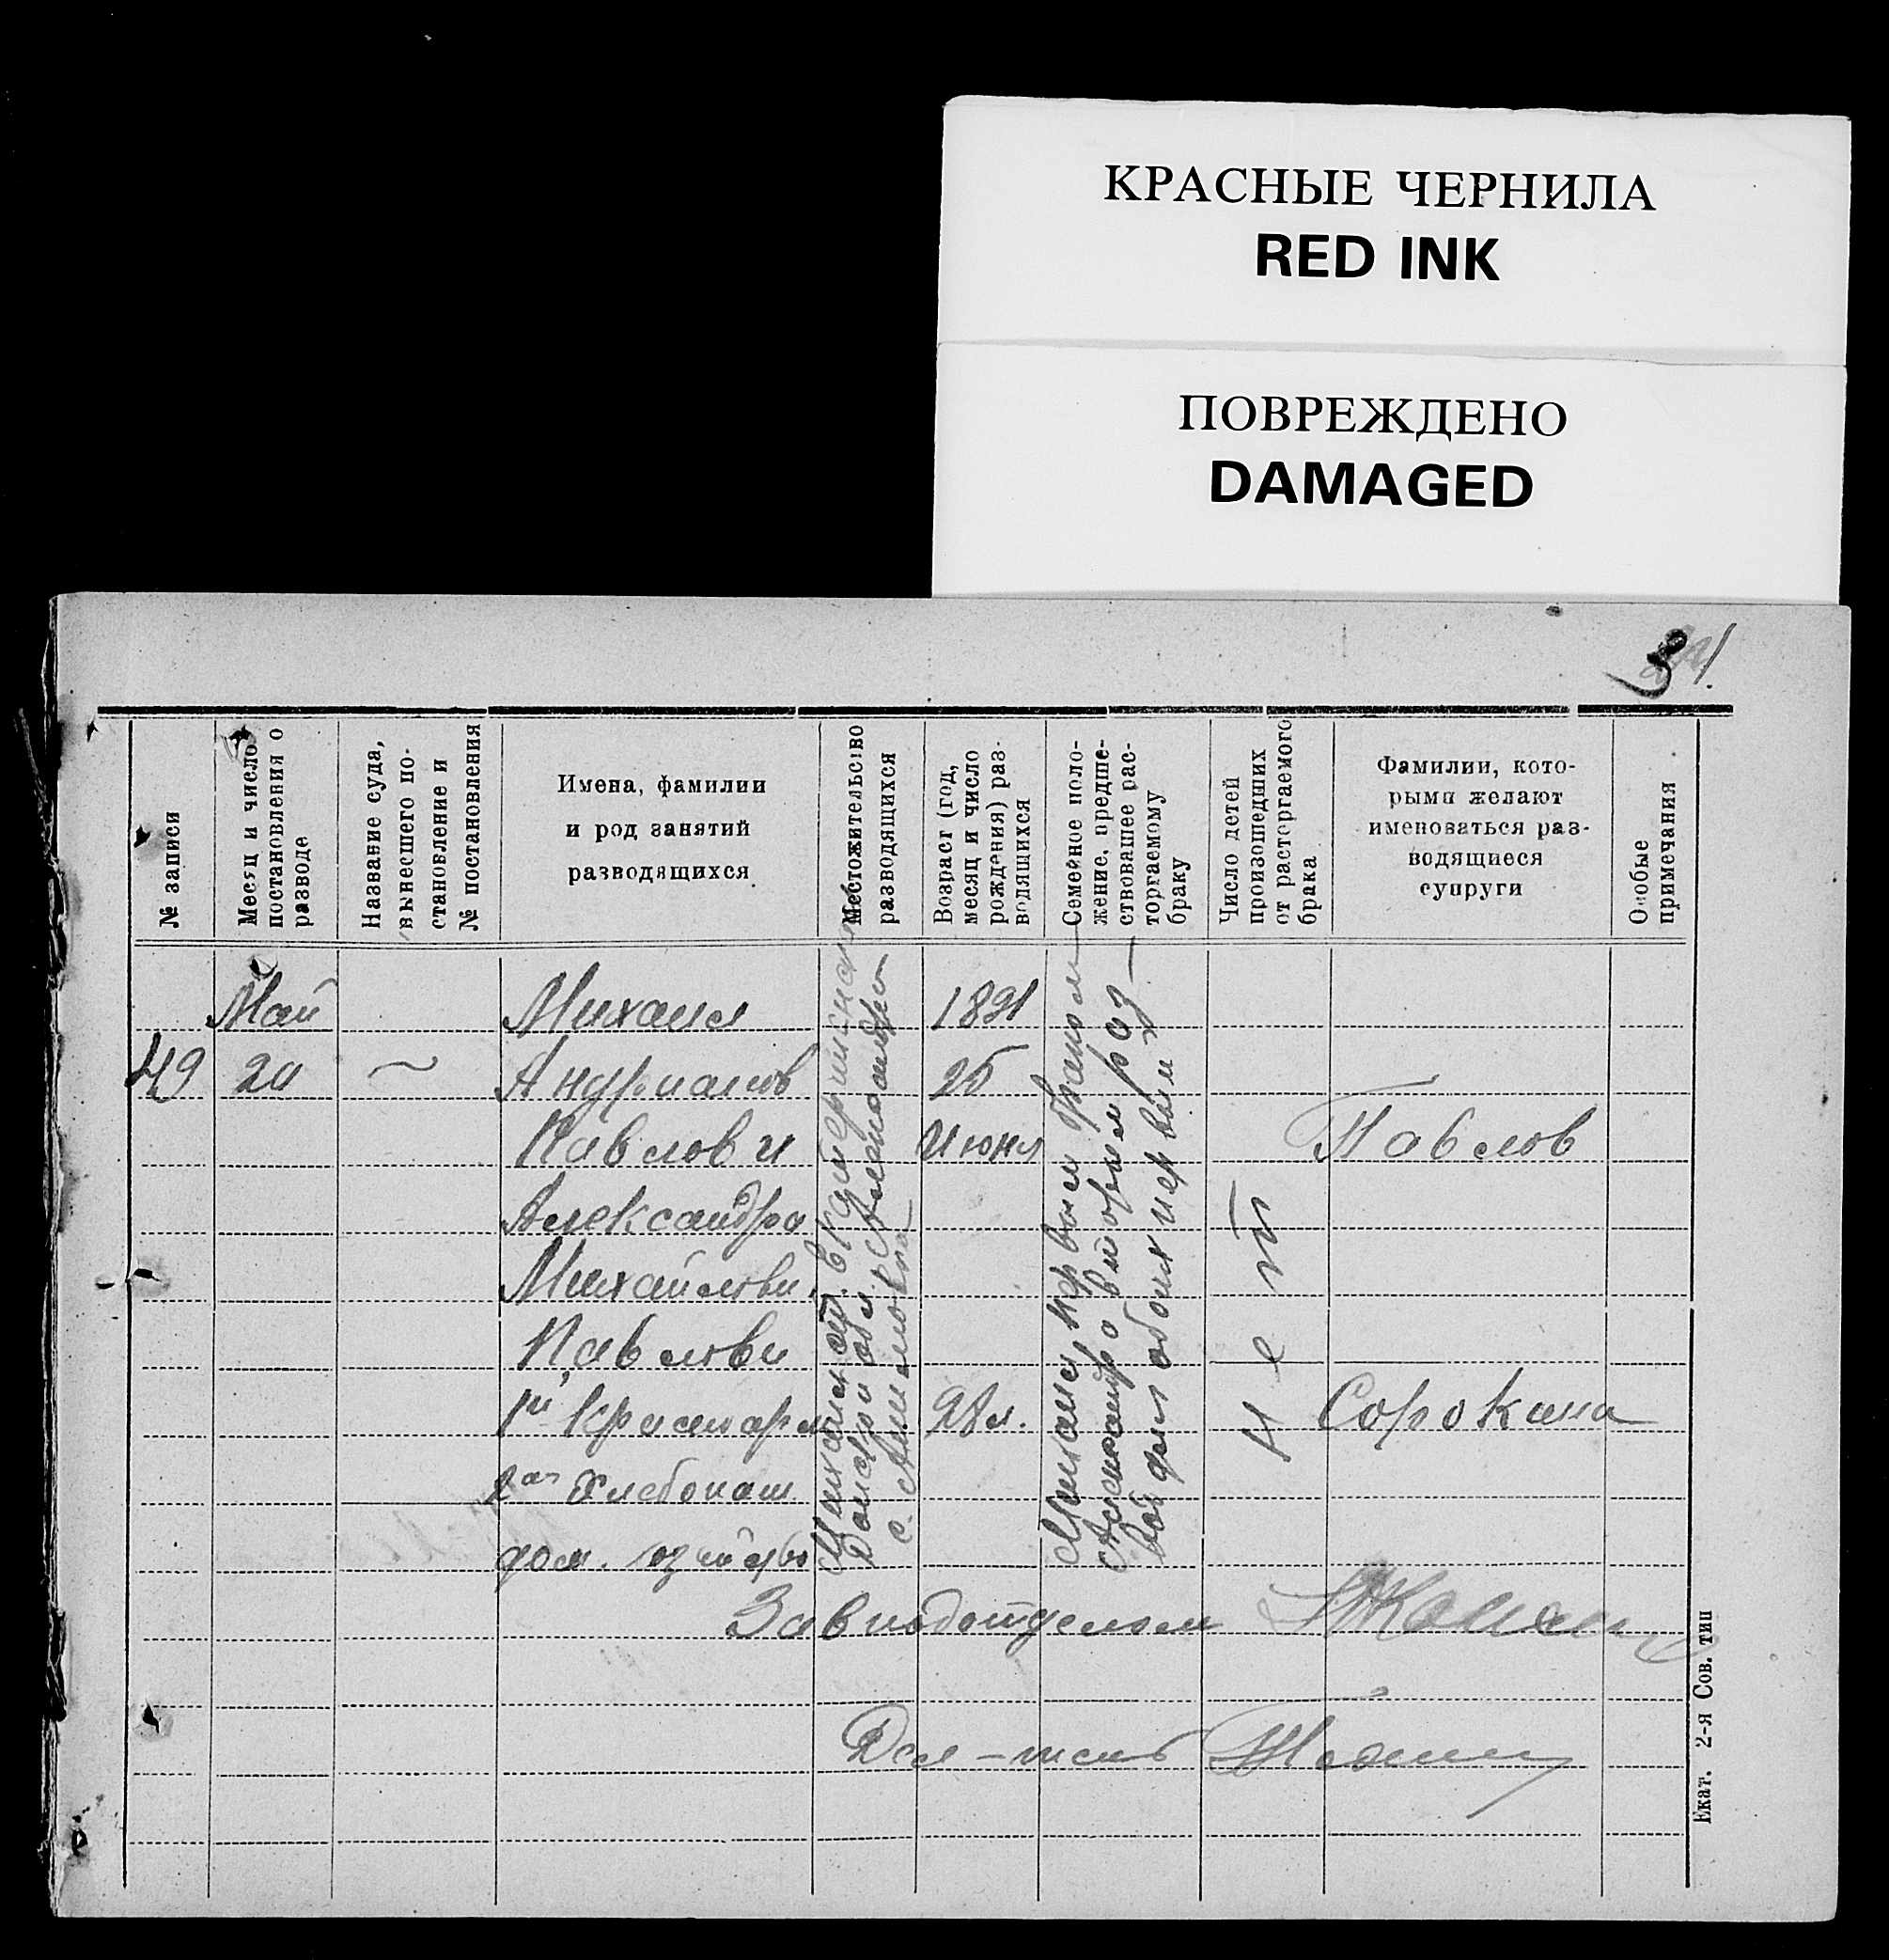 КРАСНЫЕ ЧЕРНИЛА
RED INK
ПОВРЕЖДЕНО
DAMAGED
31.
№ записи
Месяц и число
постановления о
разводе
Название суда,
вынесшего по-
становление и
№ постановления
Имена, фамилии
и род занятий
разводящихся
Местожительство
разводящихся
Возраст (год,
месяц и число
рождения) раз-
водящихся
Семейное поло-
жение, предше-
ствовавшее рас-
торгаемому
браку
Число детей
происшедших
от расторгаемого
брака
Фамилии, кото-
рыми желают
именоваться раз-
водящиеся
супруги
Особые
примечания
49
Май
20
Михаил
Андрианов
Павлов и
Александра
Михайловн.
Павлови
1й
2ая Хлебопаш.
дом.
Михаил ст. Екатерининская
Донской обл. Александра
с.
1891
25
Июня
28 л.
Михаил первым браком
Александра вторым раз
обоих первый
Нет
Павлов
Сорокина
Завподотделом
Дел-тель
Екат. 2-я Сов. тип